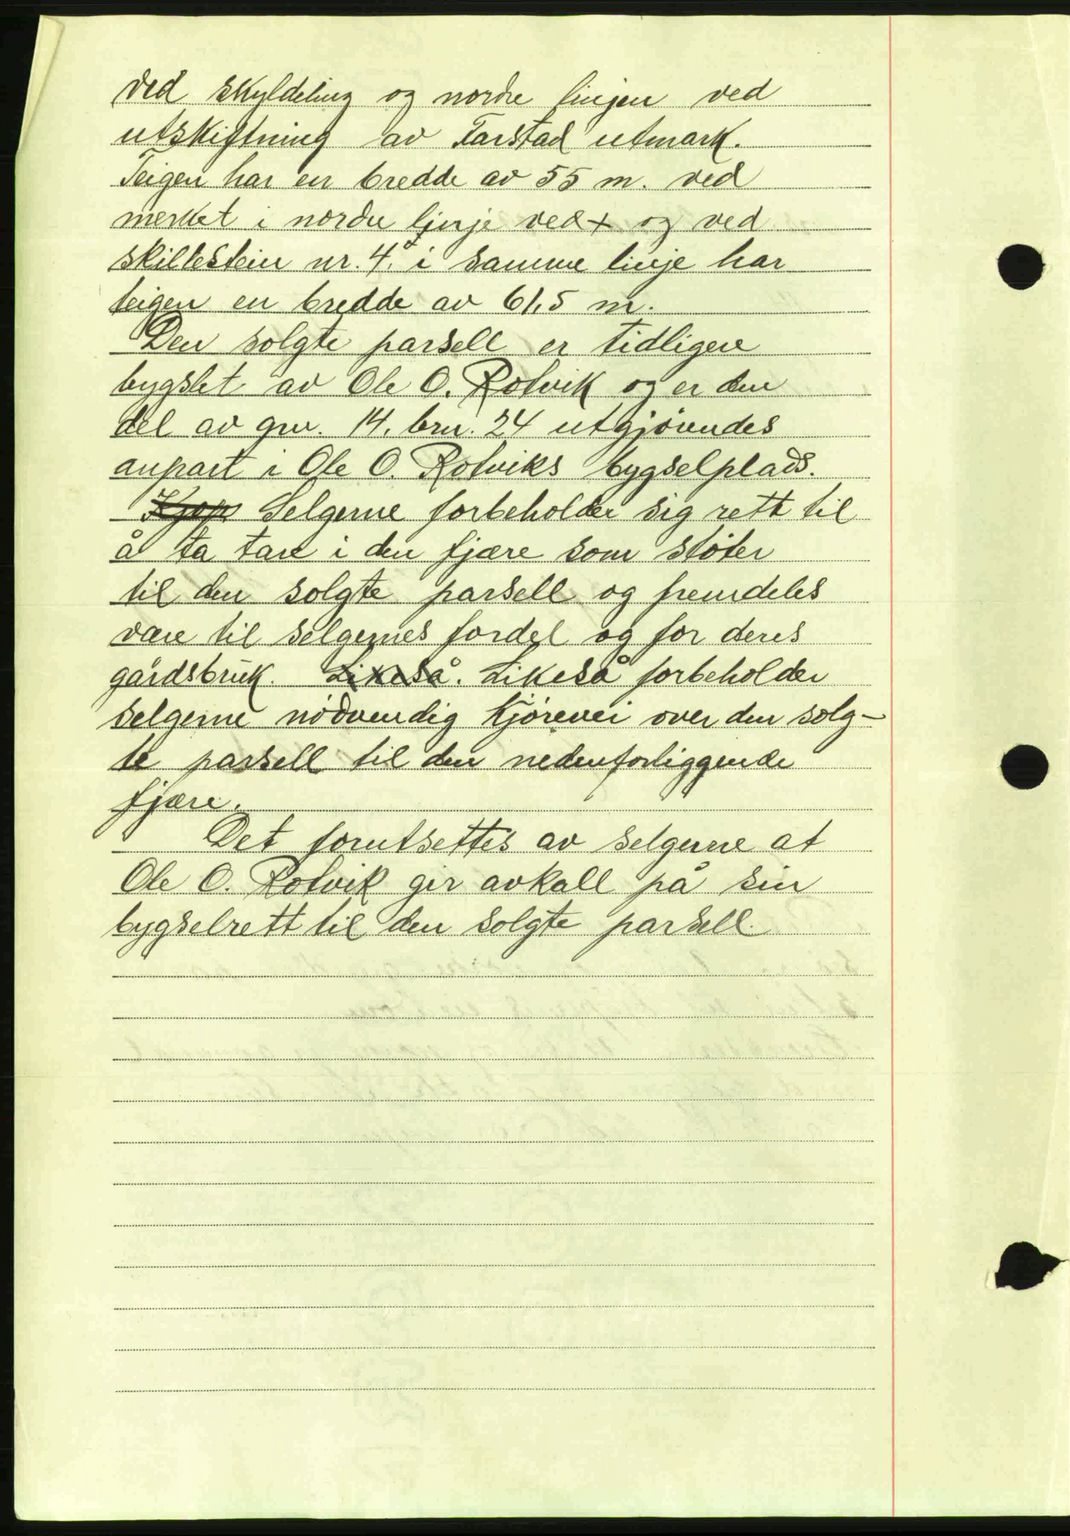 ved skyldeling og nordre linjen ved
utskiftning av Farstad utmark.
Teigen har en bredde av 55 m. ved
merket i nordre linje ved + og ved
skiltestein nr. 4. i samme linje har
teigen en bredde av 61,5 m.
Den solgte parsell er tidligere
bygslet av Ole O. Rotvik og er den
del av gnr. 14, brn. 24 utgjørendes
anpart i Ole O. Rotviks bygselplads.
Kjøp Selgerne forbeholder sig rett til
å ta tare i den fjære som støter
til den solgte parsell og fremdeles
være til selgernes fordel og for deres
gårdsbruk. Likeså. Likeså forbeholder
selgerne nødvendig kjørevei over den solg-
te parsell til den nedenforliggende
fjære.
Det forutsettes av selgerne at
Ole O. Rotvik gir avkall på sin
bygselrett til den solgte parsell.